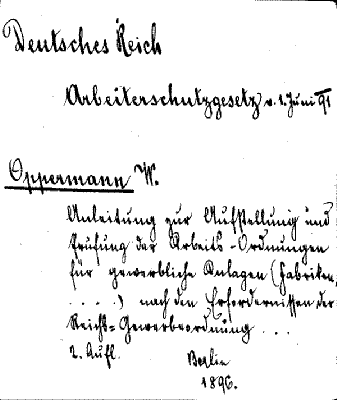 Deutsches Reich
Arbeiterschutzgesetz v. 1. Juni 91
Oppermann W.
Anleitung zur Aufstellung und
Prüfung der Arbeits-Ordnungen
für gewerbliche Anlagen (Fabriken,
. . . .) nach den Erfordernissen der
Reichs-Gewerbeordnung . . .
2. Aufl.
Berlin
1896.